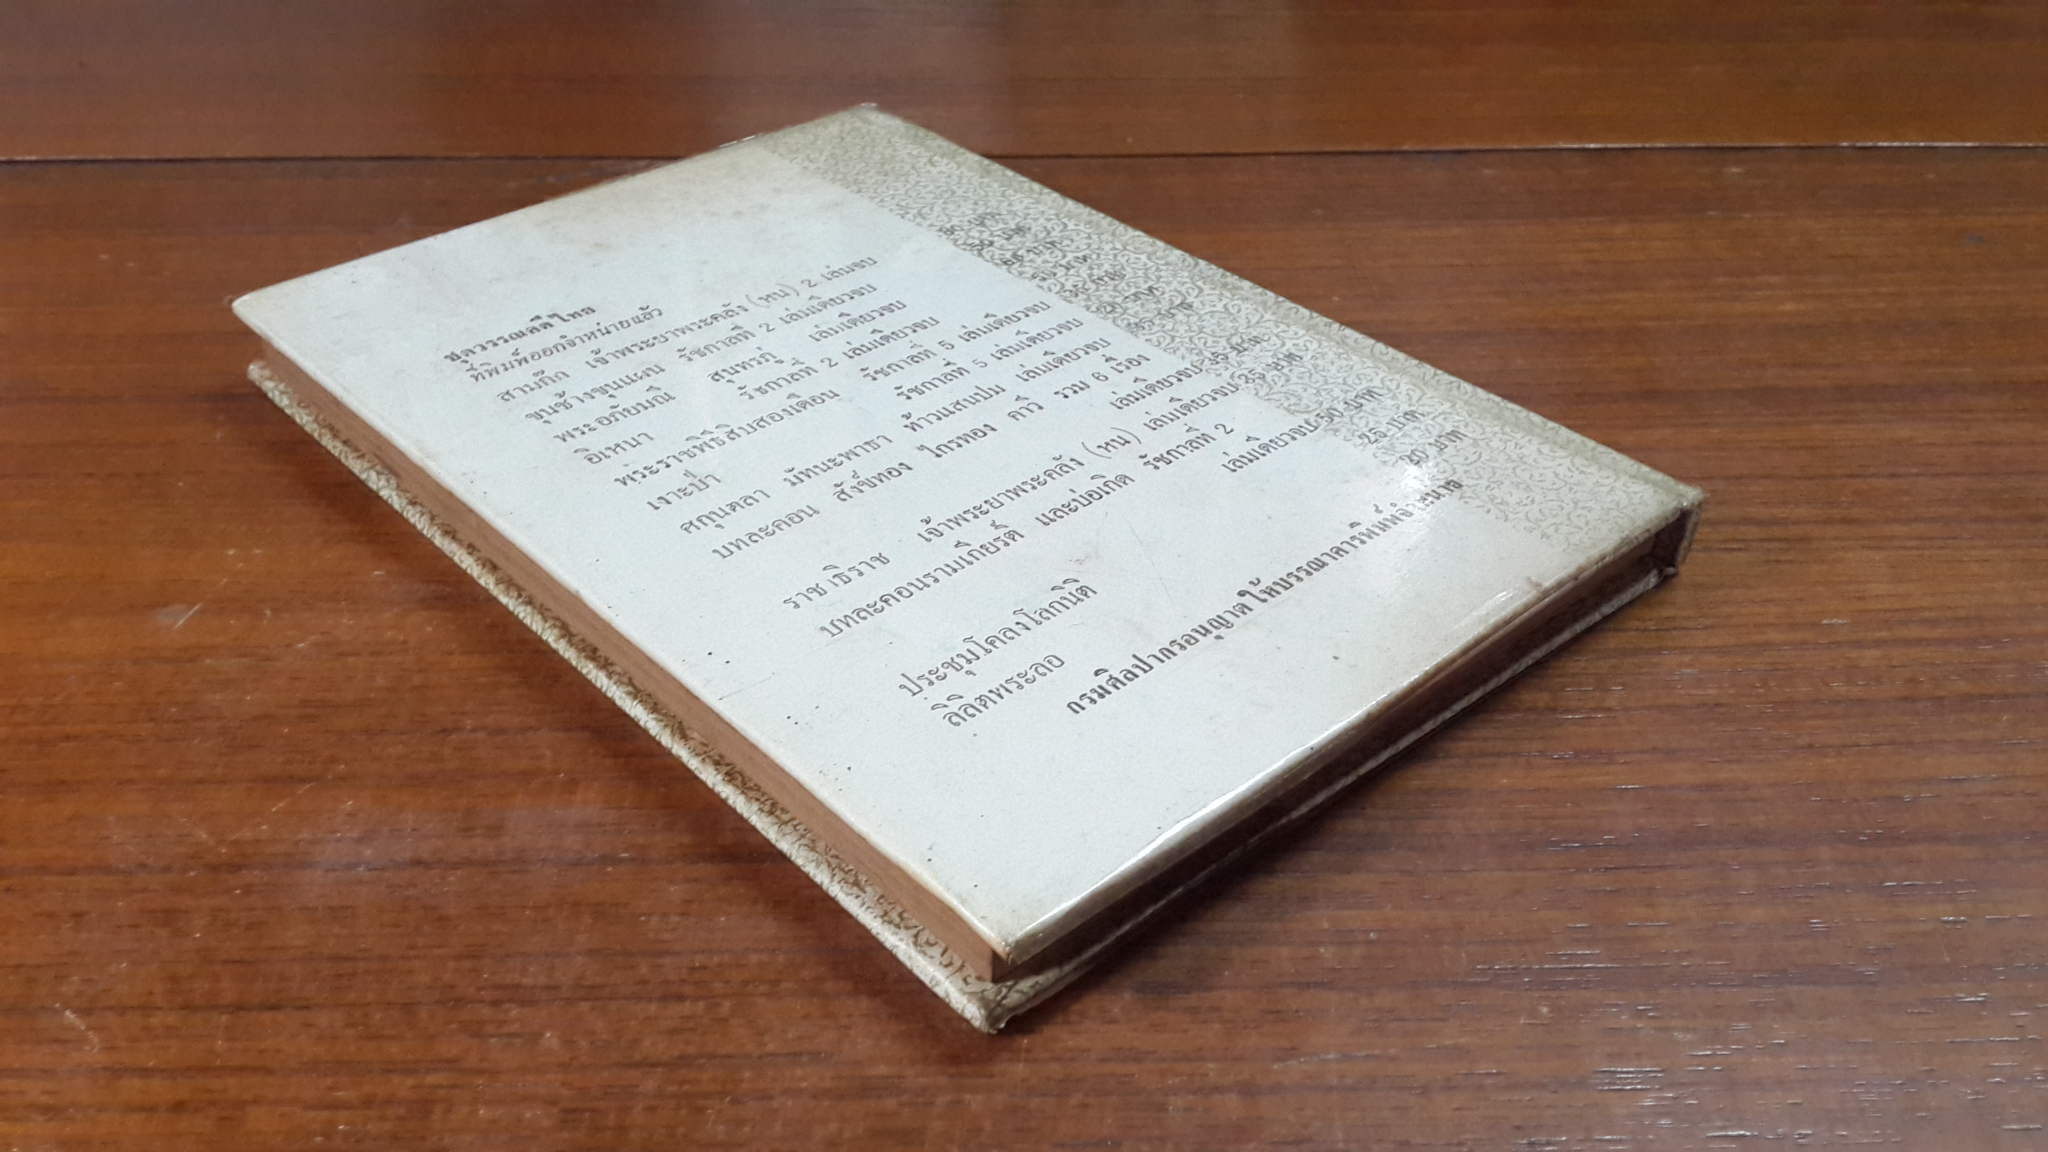 ชุดวรรณคดีไทย
ที่พิมพ์ออกจำหน่ายแล้ว
สามก๊ก เจ้าพระยาพระคลัง (หน) 2 เล่มจบ บาท
ขุนช้างขุนแผน รัชกาลที่ 2 เล่มเดียวจบ บาท
พระอภัยมณี สุนทรภู่ เล่มเดียวจบ บาท
อิเหนา รัชกาลที่ 2 เล่มเดียวจบ บาท
พระราชพิธีสิบสองเดือน รัชกาลที่ 5 เล่มเดียวจบ บาท
เงาะป่า รัชกาลที่ 5 เล่มเดียวจบ บาท
ศกุนตลา มัทนะพาธา ท้าวแสนปม เล่มเดียวจบ บาท
บทละคอน สังข์ทอง ไกรทอง คาวี รวม 6 เรื่อง
เล่มเดียวจบ 35 บาท
ราชาธิราช เจ้าพระยาพระคลัง (หน) เล่มเดียวจบ 35 บาท
บทละคอนรามเกียรติ์ และบ่อเกิด รัชกาลที่ 2
เล่มเดียวจบ 50 บาท
ประชุมโคลงโลกนิติ 25 บาท
ลิลิตพระลอ 20 บาท
กรมศิลปากรอนุญาตให้บรรณาคารพิมพ์จำหน่าย